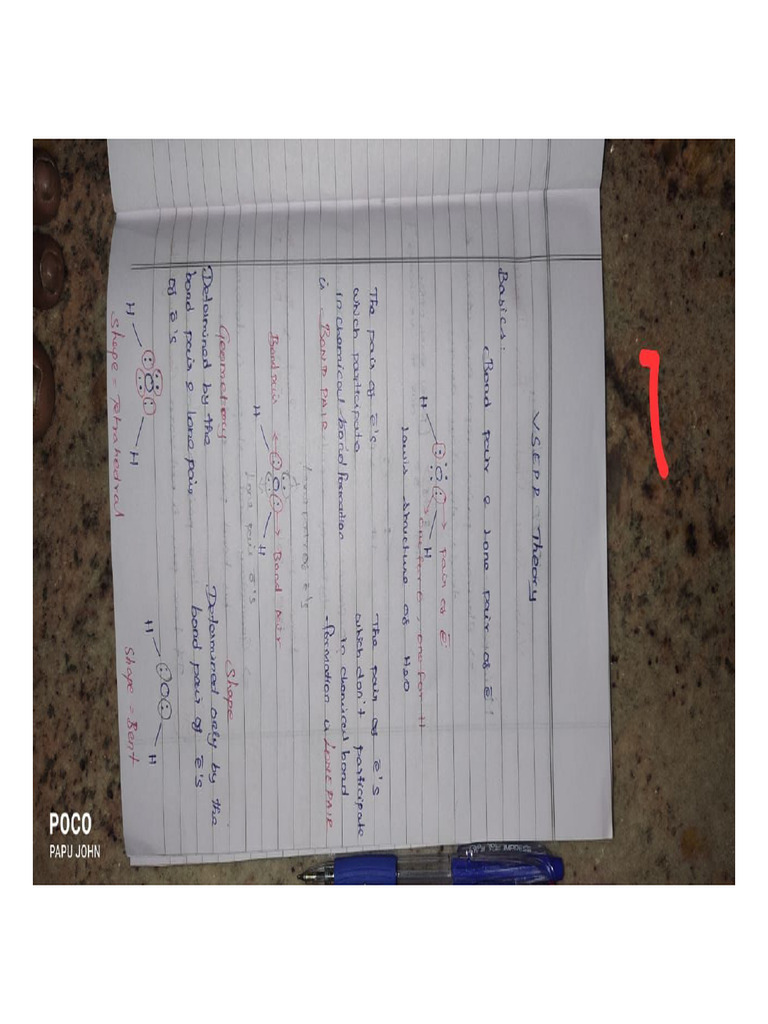 V.S.E.P.R Theory
Basics:
Bond pair & lone pair of ē
H :O: H → pair of ē
one for O, one for H
Lewis structure of H₂O
The pair of ē's
which participate
in chemical bond formation
is BOND PAIR
The pair of ē's
which don't participate
in chemical bond
-formation is LONE PAIR
Lone pair of ē's
Bond pair ← :O: → Bond pair
H H
Lone pair ē's
Geometery
Determined by the
bond pair & lone pair
of ē's
Shape
Determined only by the
bond pair of ē's
H :O: H
Shape = Tetrahedral
H :O: H
Shape = Bent
POCO
PAPU JOHN